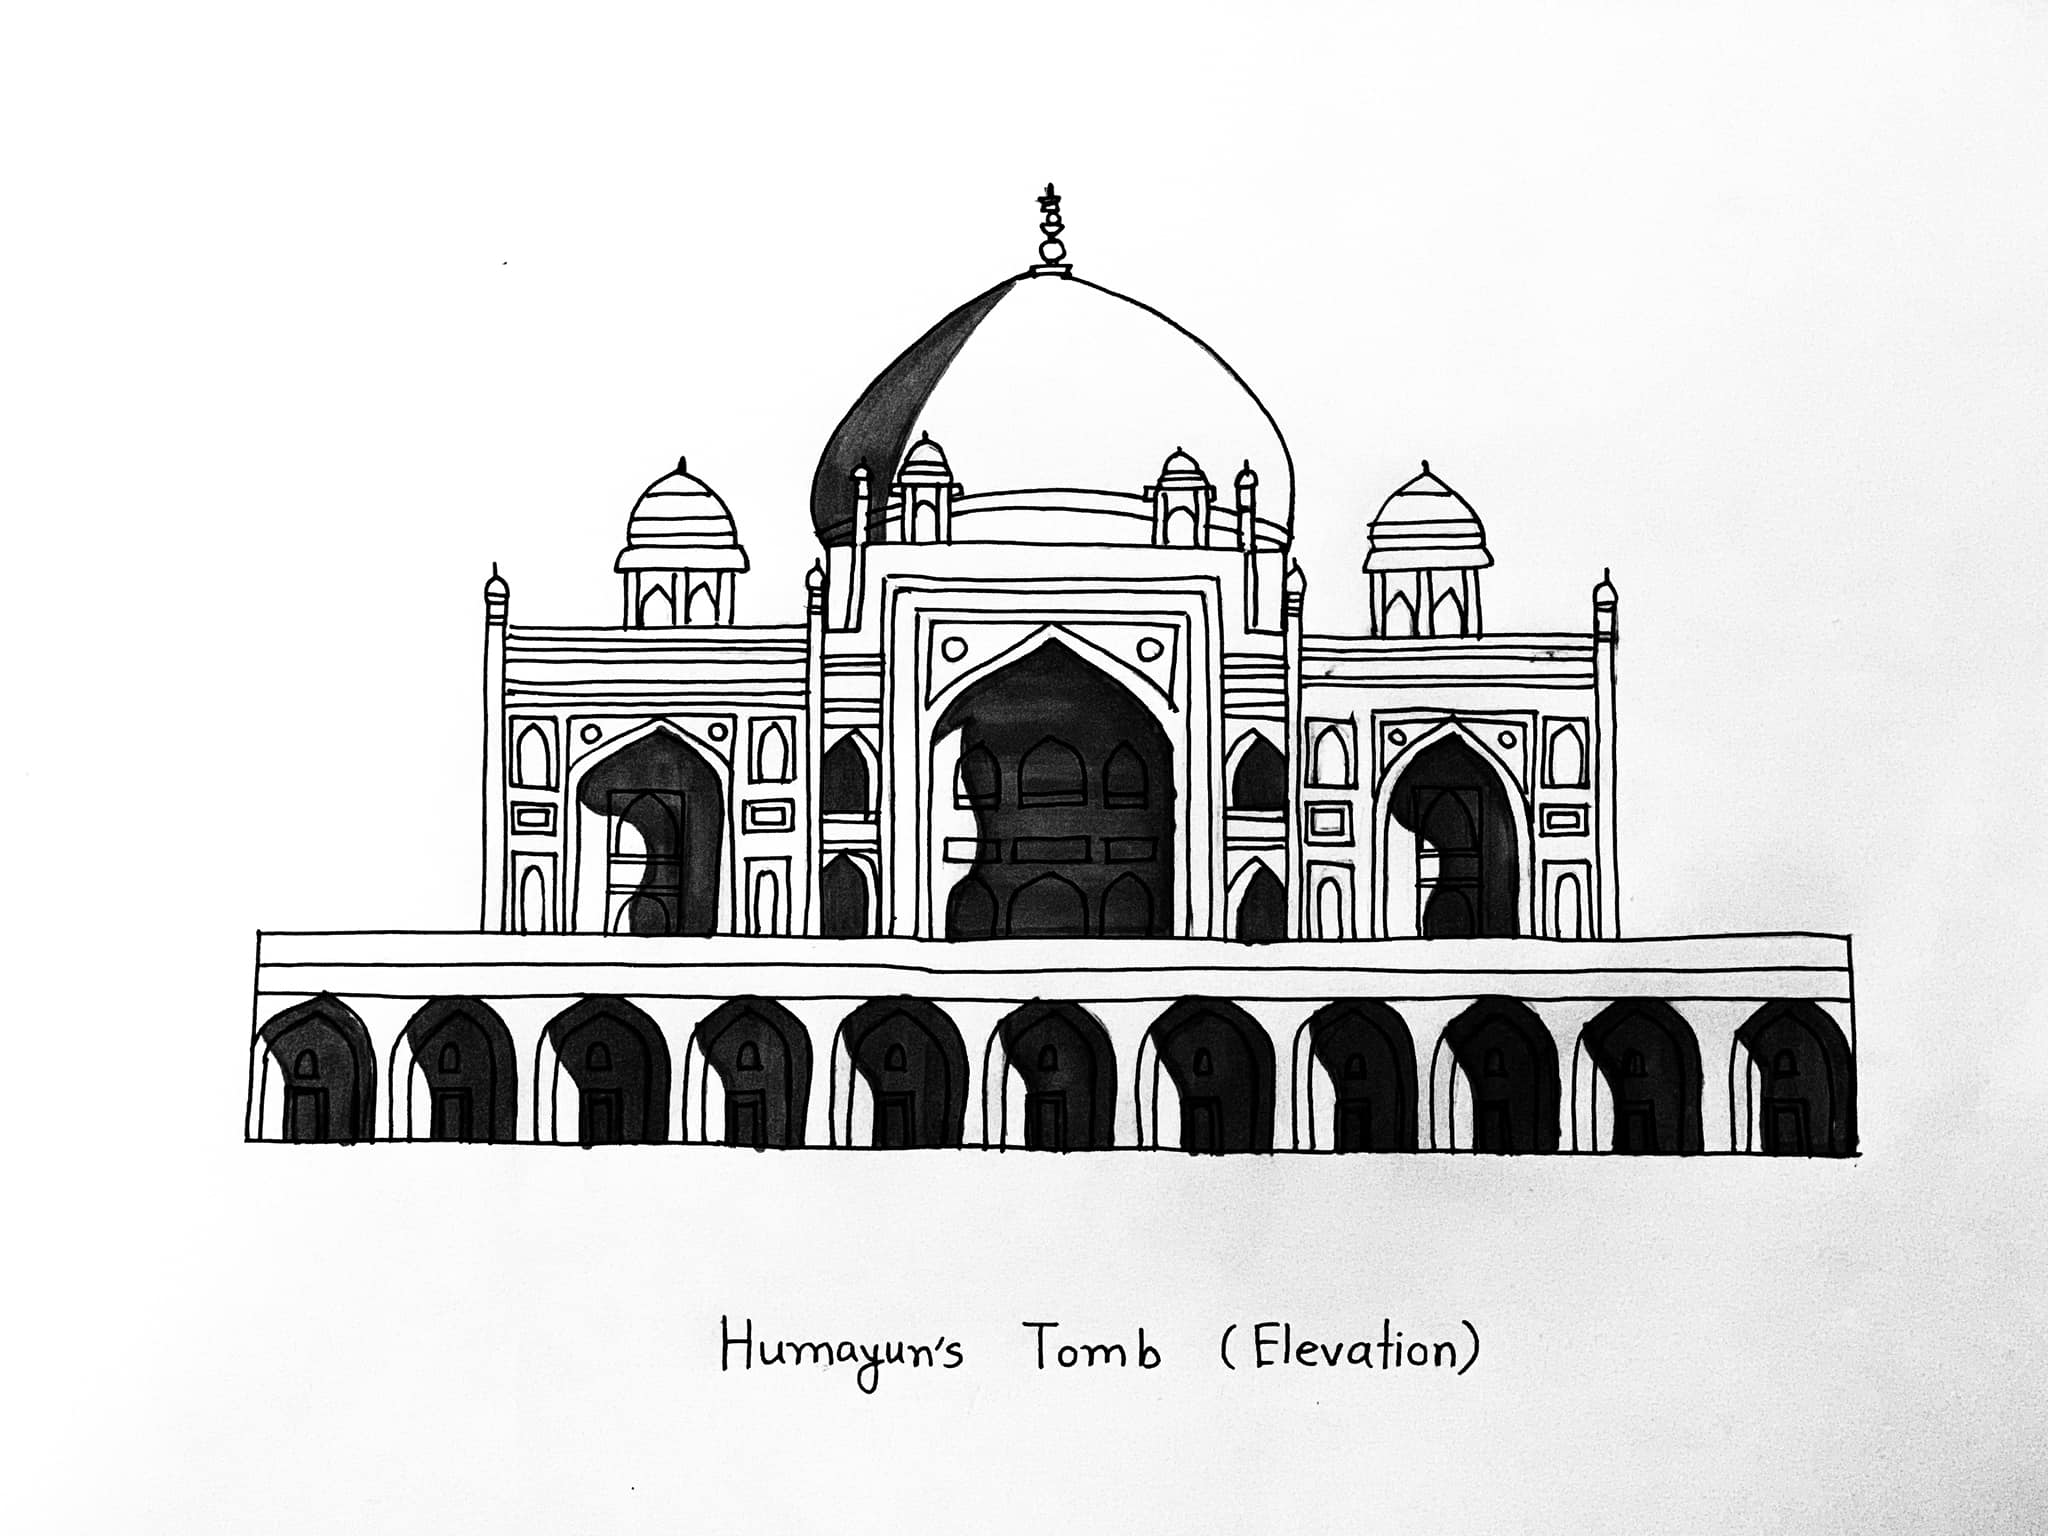 Humayun's Tomb (Elevation)